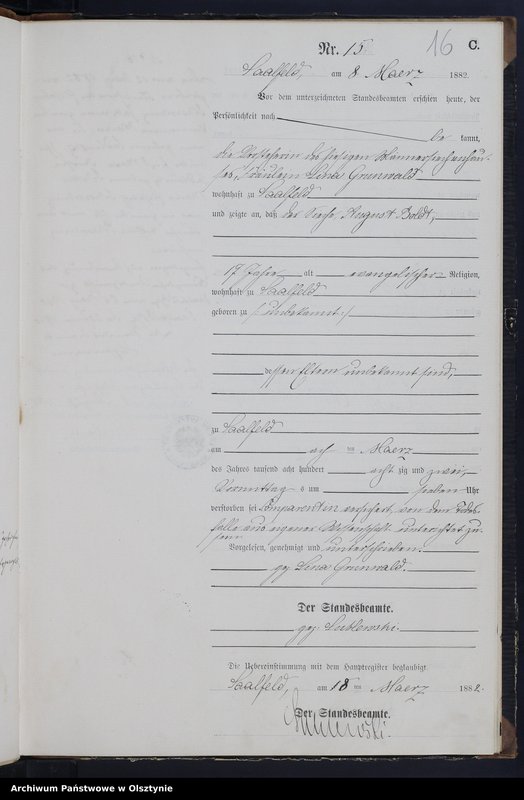 16
Nr. 15 C.
Saalfeld, am 8 Maerz 1882.
Vor dem unterzeichneten Standesbeamten erschien heute, der
Persönlichkeit nach
be kannt,
die Vorsteherin des hiesigen Männersiechenhau-
ses, Fräulein Lina Grunwald
wohnhaft zu Saalfeld
und zeigte an, daß der Sieche August Boldt,
17 Jahre alt evangelischer Religion,
wohnhaft zu Saalfeld
geboren zu /: unbekannt :/
dessen Eltern unbekannt sind,
zu Saalfeld
am ach ten Maerz
des Jahres tausend acht hundert acht zig und zwei,
Vormittag s um sieben Uhr
verstorben sei Comparentin versichert, von dem Todes-
falle aus eigener Wissenschaft unterrichtet zu
sein
Vorgelesen, genehmigt und unterschrieben.
gez. Lina Grunwald.
Der Standesbeamte.
gez.
Die Uebereinstimmung mit dem Hauptregister beglaubigt
Saalfeld, am 18 ten Maerz 1882.
Der Standesbeamte.
Archiwum Państwowe w Olsztynie